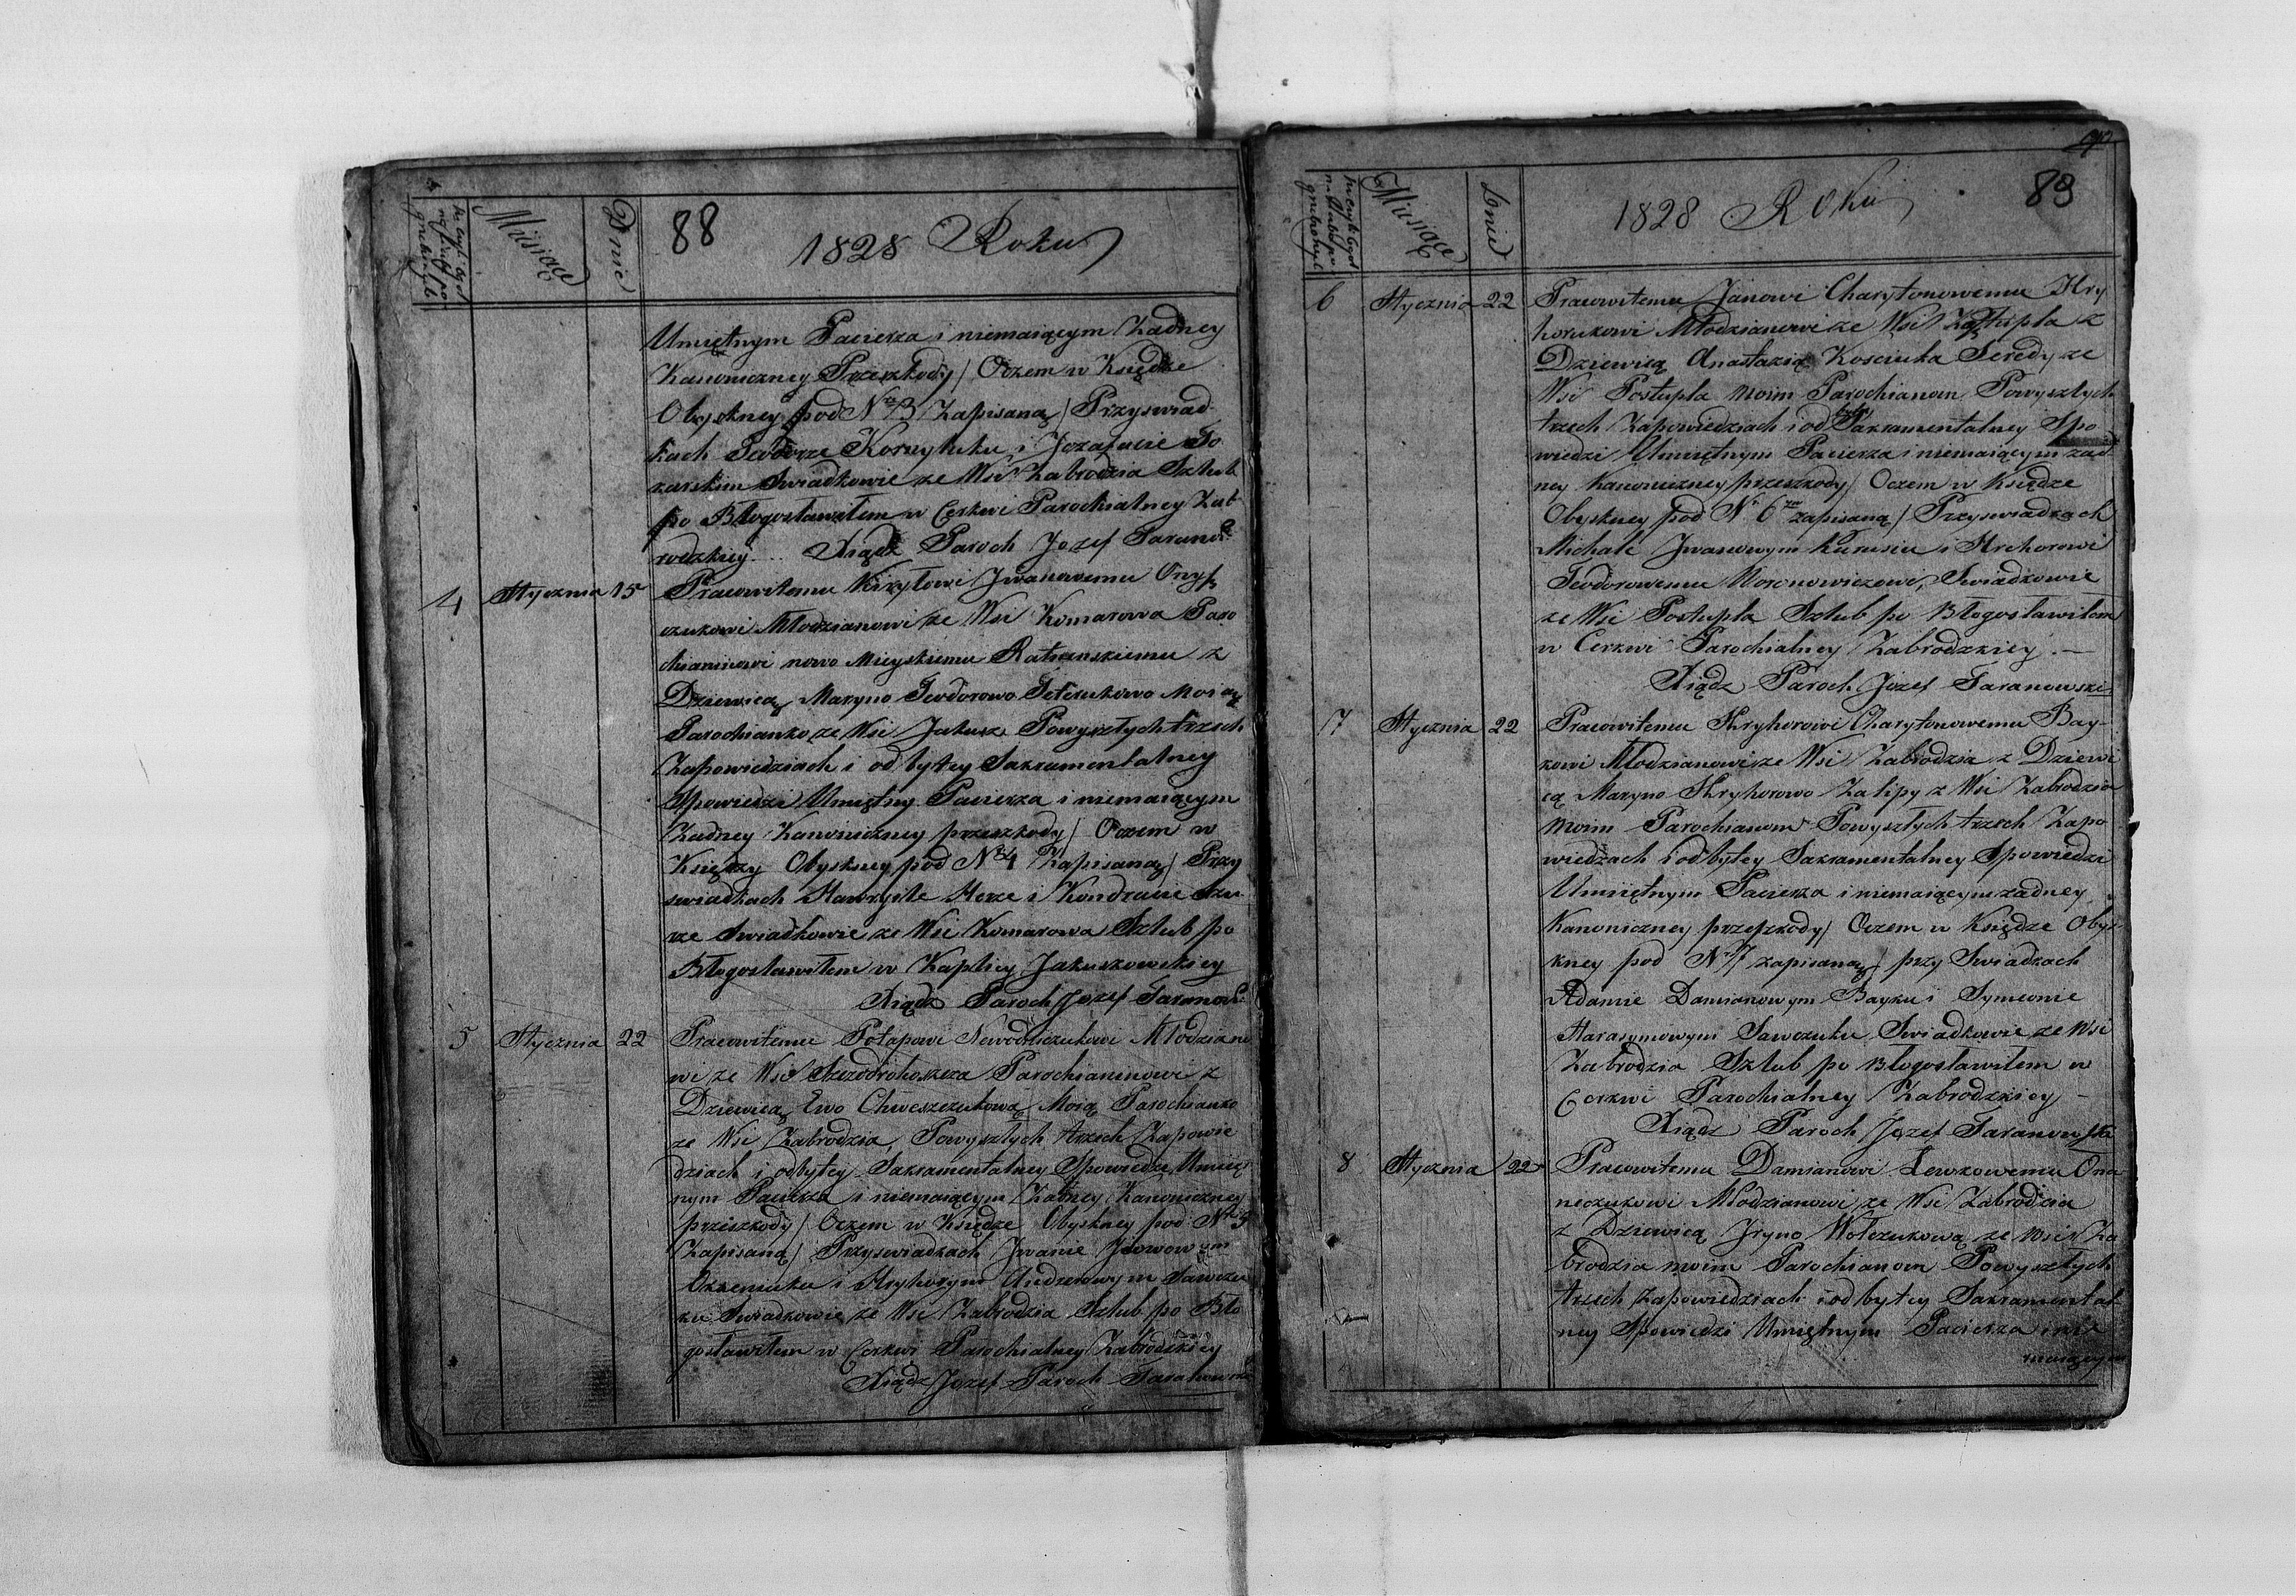 88
1828 Roku
Miesiące
Dnie
Umiętnym Pacierza i niemaiącym Żadney
Kanoniczney Przeszkody / Oczem w Księdze
Obyskney pod N 3 Zapisaną / Przyswiad
kach Teodorze Kornyluku i Jozafacie To
karskim Swiadkowie ze Wsi Zabrodzia Szlub
po Błogosławiłem w Cerkwi Parochialney Zab
rodzkiey Xiądz Paroch Jozef Taranow
4 Stycznia 15 Pracowitemu Kiryłowi Jwanowemu Onysz
czukowi Młodzianowi ze Wsi Komarowa Paro
chianinowi nowo Mieyskiemu Ratnenskiemu z
Dziewicą Maryno Teodorowo Moią
Parochianko ze Wsi Jakusz Powyszłych trzech
Zapowiedziach i odbytey Sakramentalney
Spowiedzi Umiętny Pacierza i niemaiącym
Żadney Kanoniczney przeszkody / Oczem w
Księdzy Obyskney pod N 4 Zapisaną / Przy
swiadkach Hawryile i Kondracie
Swiadkowie ze Wsi Komarowa Szlub po
Błogosławiłem w Kaplicy Jakuszowskiey
Xiądz Paroch Jozef Taranow
5 Stycznia 22 Pracowitemu Potapowi Młodziano
wi ze Wsi Parochianinowi z
Dziewicą Ewo Chweszczukową Moią Parochianko
ze Wsi Zabrodzia, Powyszłych trzech Zapowie
dziach i odbytey Sakramentalney Spowiedzi Umiię
nym Pacierza i niemaiącym Żadney Kanoniczney
przeszkody / Oczem w Księdze Obyskney pod N 5
Zapisaną / Przyswiadkach Jwanie
i Hryhorym Andzeiowym Sawczu
ku Swiadkowie ze Wsi Zabrodzia Szlub po Bło
gosławiłem w Cerkwi Parochialney Zabrodzkiey
Xiądz Jozef Paroch Taranowski
89
1828 Roku
Miesiące
Dnie
6 Stycznia 22 Pracowitemu Janowi Charytonowemu Hry
horukowi Młodzianowi ze Wsi z
Dziewicą Anastazią Kosciuka Seredy ze
Wsi Postupla moim Parochianom Powyszłych
trzech Zapowiedziach i od bytey Sakramentalney Spo
wiedzi Umiętnym Pacierza i niemaiącym żad
ney Kanoniczney przeszkody / Oczem w Księdze
Obyskney pod N 6 zapisaną / Przyswiadkach
Michale Jwanowym i Hrehorowi
Teodorowemu Swiadkowie
ze Wsi Postupla Szlub po Błogosławiłem
w Cerkwi Parochialney Zabrodzkiey
Xiądz Paroch Jozef Taranowski
7 Stycznia 22 Pracowitemu Hryhorowi Charytonowemu Bay
kowi Młodzianowi ze Wsi Zabrodzia z Dziewi
cą Maryno Hryhorowo Zalipy z Wsi Zabrodzia
moim Parochianom Powyszłych trzech Zapo
wiedzach i odbytey Sakramentalney Spowiedzi
Umiiętnym Pacierza i niemaiącym żadney
Kanoniczney przeszkody / Oczem w Księdze Obys
kney pod N 7 zapisaną / przy Swiadkach
Adamie Damianowym Bayku i Symeonie
Harasymowym Sawczuku Swiadkowie ze Wsi
Zabrodzia Szlub po Błogosławiłem w
Cerkwi Parochialney Zabrodzkiey
Xiądz Paroch Jozef Taranowski
8 Stycznia 22 Pracowitemu Damianowi Lewkowemu Ona
neczukowi Młodzianowi ze Wsi Zabrodzia
z Dziewicą Jryno Wołczukową ze Wsi Za
brodzia moim Parochianom Powyszłych
trzech Zapowiedziach i odbytey Sakramental
ney Spowiedzi Umiętnym Pacierza i nie
maiącym